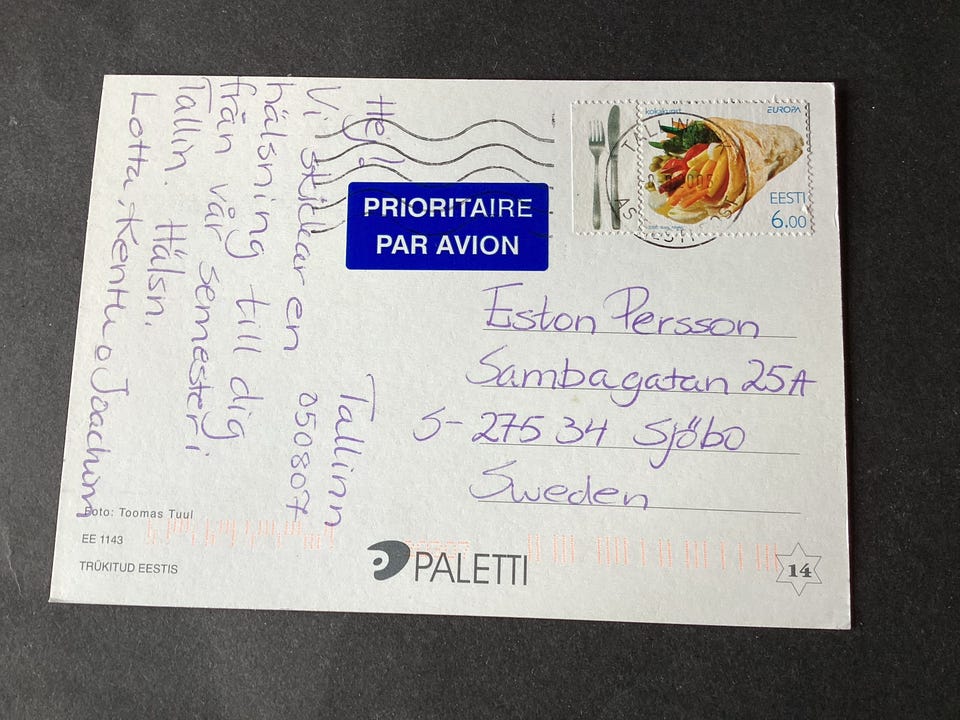 Hej!
Tallinn
050807
Vi skickar en
hälsning till dig
från vår semester i
Tallin. Hälsn.
Lotta, Kent o Joachim
PRIORITAIRE
PAR AVION
kokakunst
EUROPA
EESTI
6.00
TALLINN
2005
EESTI POST
Eston Persson
Sambagatan 25A
S- 275 34 Sjöbo
Sweden
Foto: Toomas Tuul
EE 1143
TRÜKITUD EESTIS
PALETTI
14